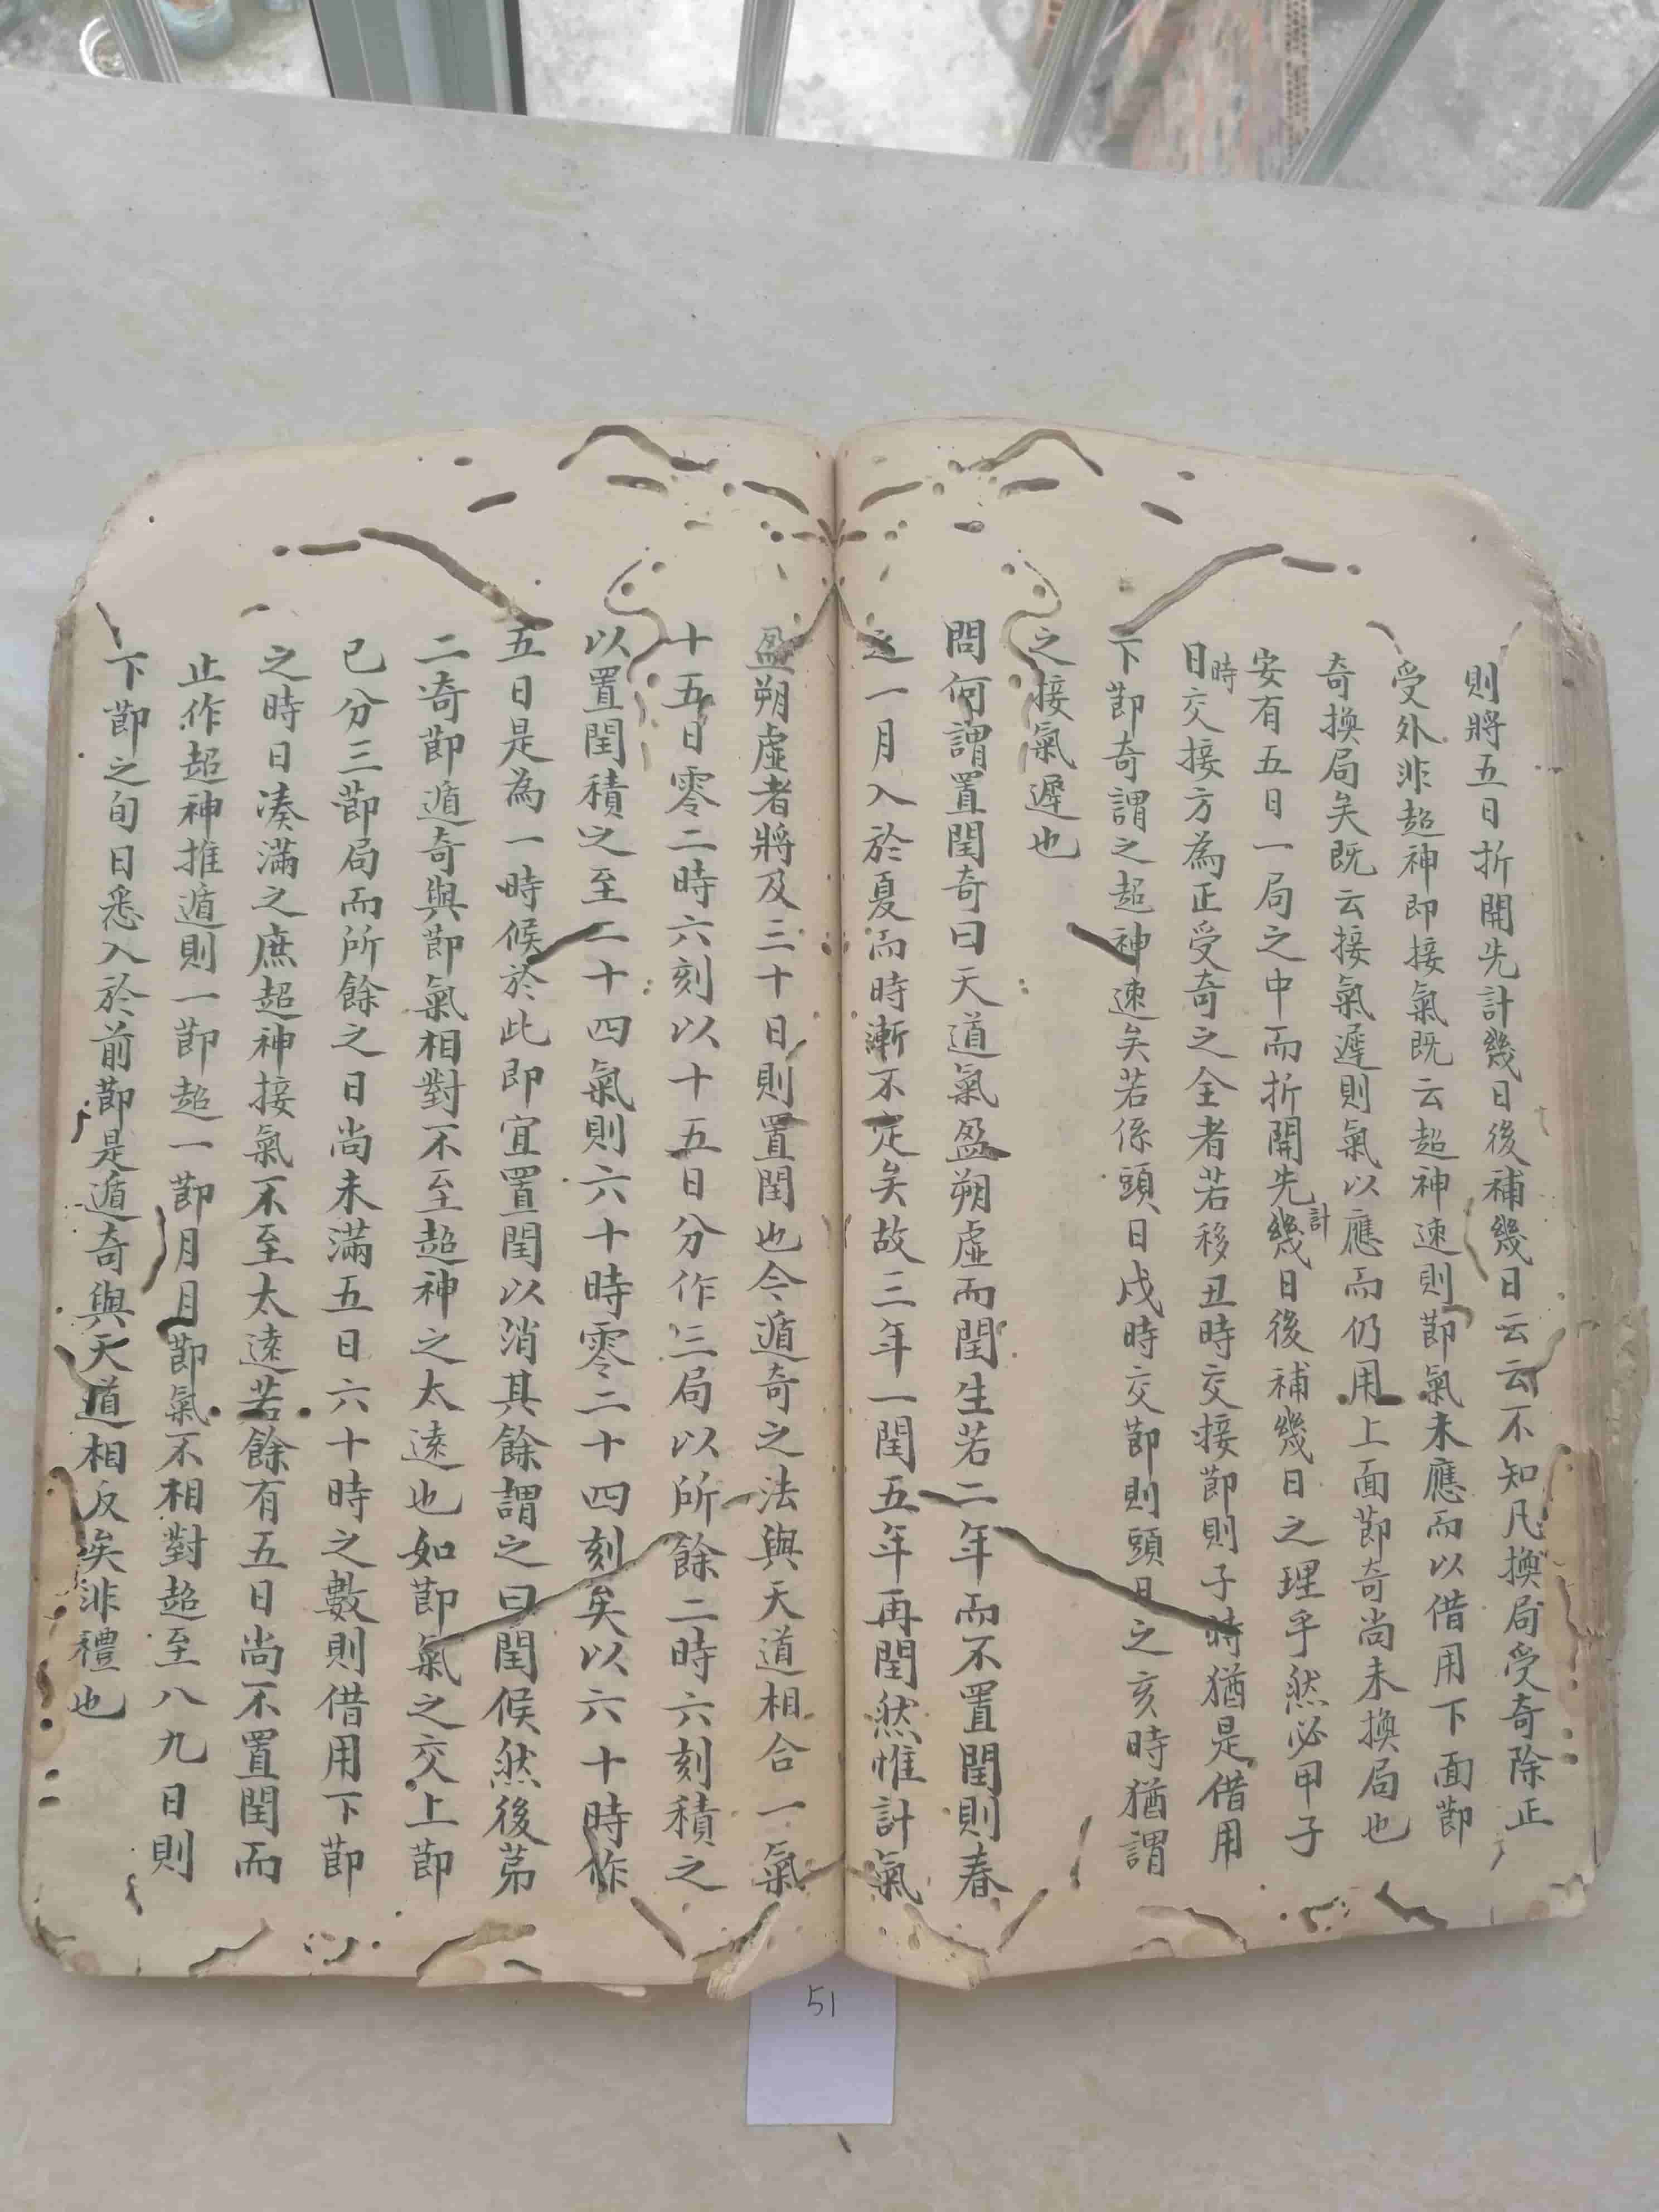 則將五日折開先計幾日後補幾日云云不知凡換局受奇除正
受外非超神即接氣既云超神速則節氣未應而以借用下面節
奇換局矣既云接氣遲則氣以應而仍用上面節奇尚未換局也
安有五日一局之中而折開先計幾日後補幾日之理乎然必甲子
日時交接方為正受奇之全者若移丑時交接節則子時猶是借用
下節奇謂之超神速矣若係頭日戌時交節則頭日之亥時猶謂
之接氣遲也
問何謂置閏奇曰天道氣盈朔虛而閏生若二年而不置閏則春
之一月入於夏而時漸不定矣故三年一閏五年再閏然惟計氣
盈朔虛者將及三十日則置閏也今遁奇之法與天道相合一氣
十五日零二時六刻以十五日分作三局以所餘二時六刻積之
以置閏積之至二十四氣則六十時零二十四刻矣以六十時作
五日是為一時候於此即宜置閏以消其餘謂之曰閏候然後苐
二奇節遁奇與節氣相對不至超神之太遠也如節氣之交上節
已分三節局而所餘之日尚未滿五日六十時之數則借用下節
之時日湊滿之庶超神接氣不至太遠若餘有五日尚不置閏而
止作超神推遁則一節超一節月月節氣不相對超至八九日則
下節之旬日悉入於前節是遁奇與天道相反矣非禮也
51